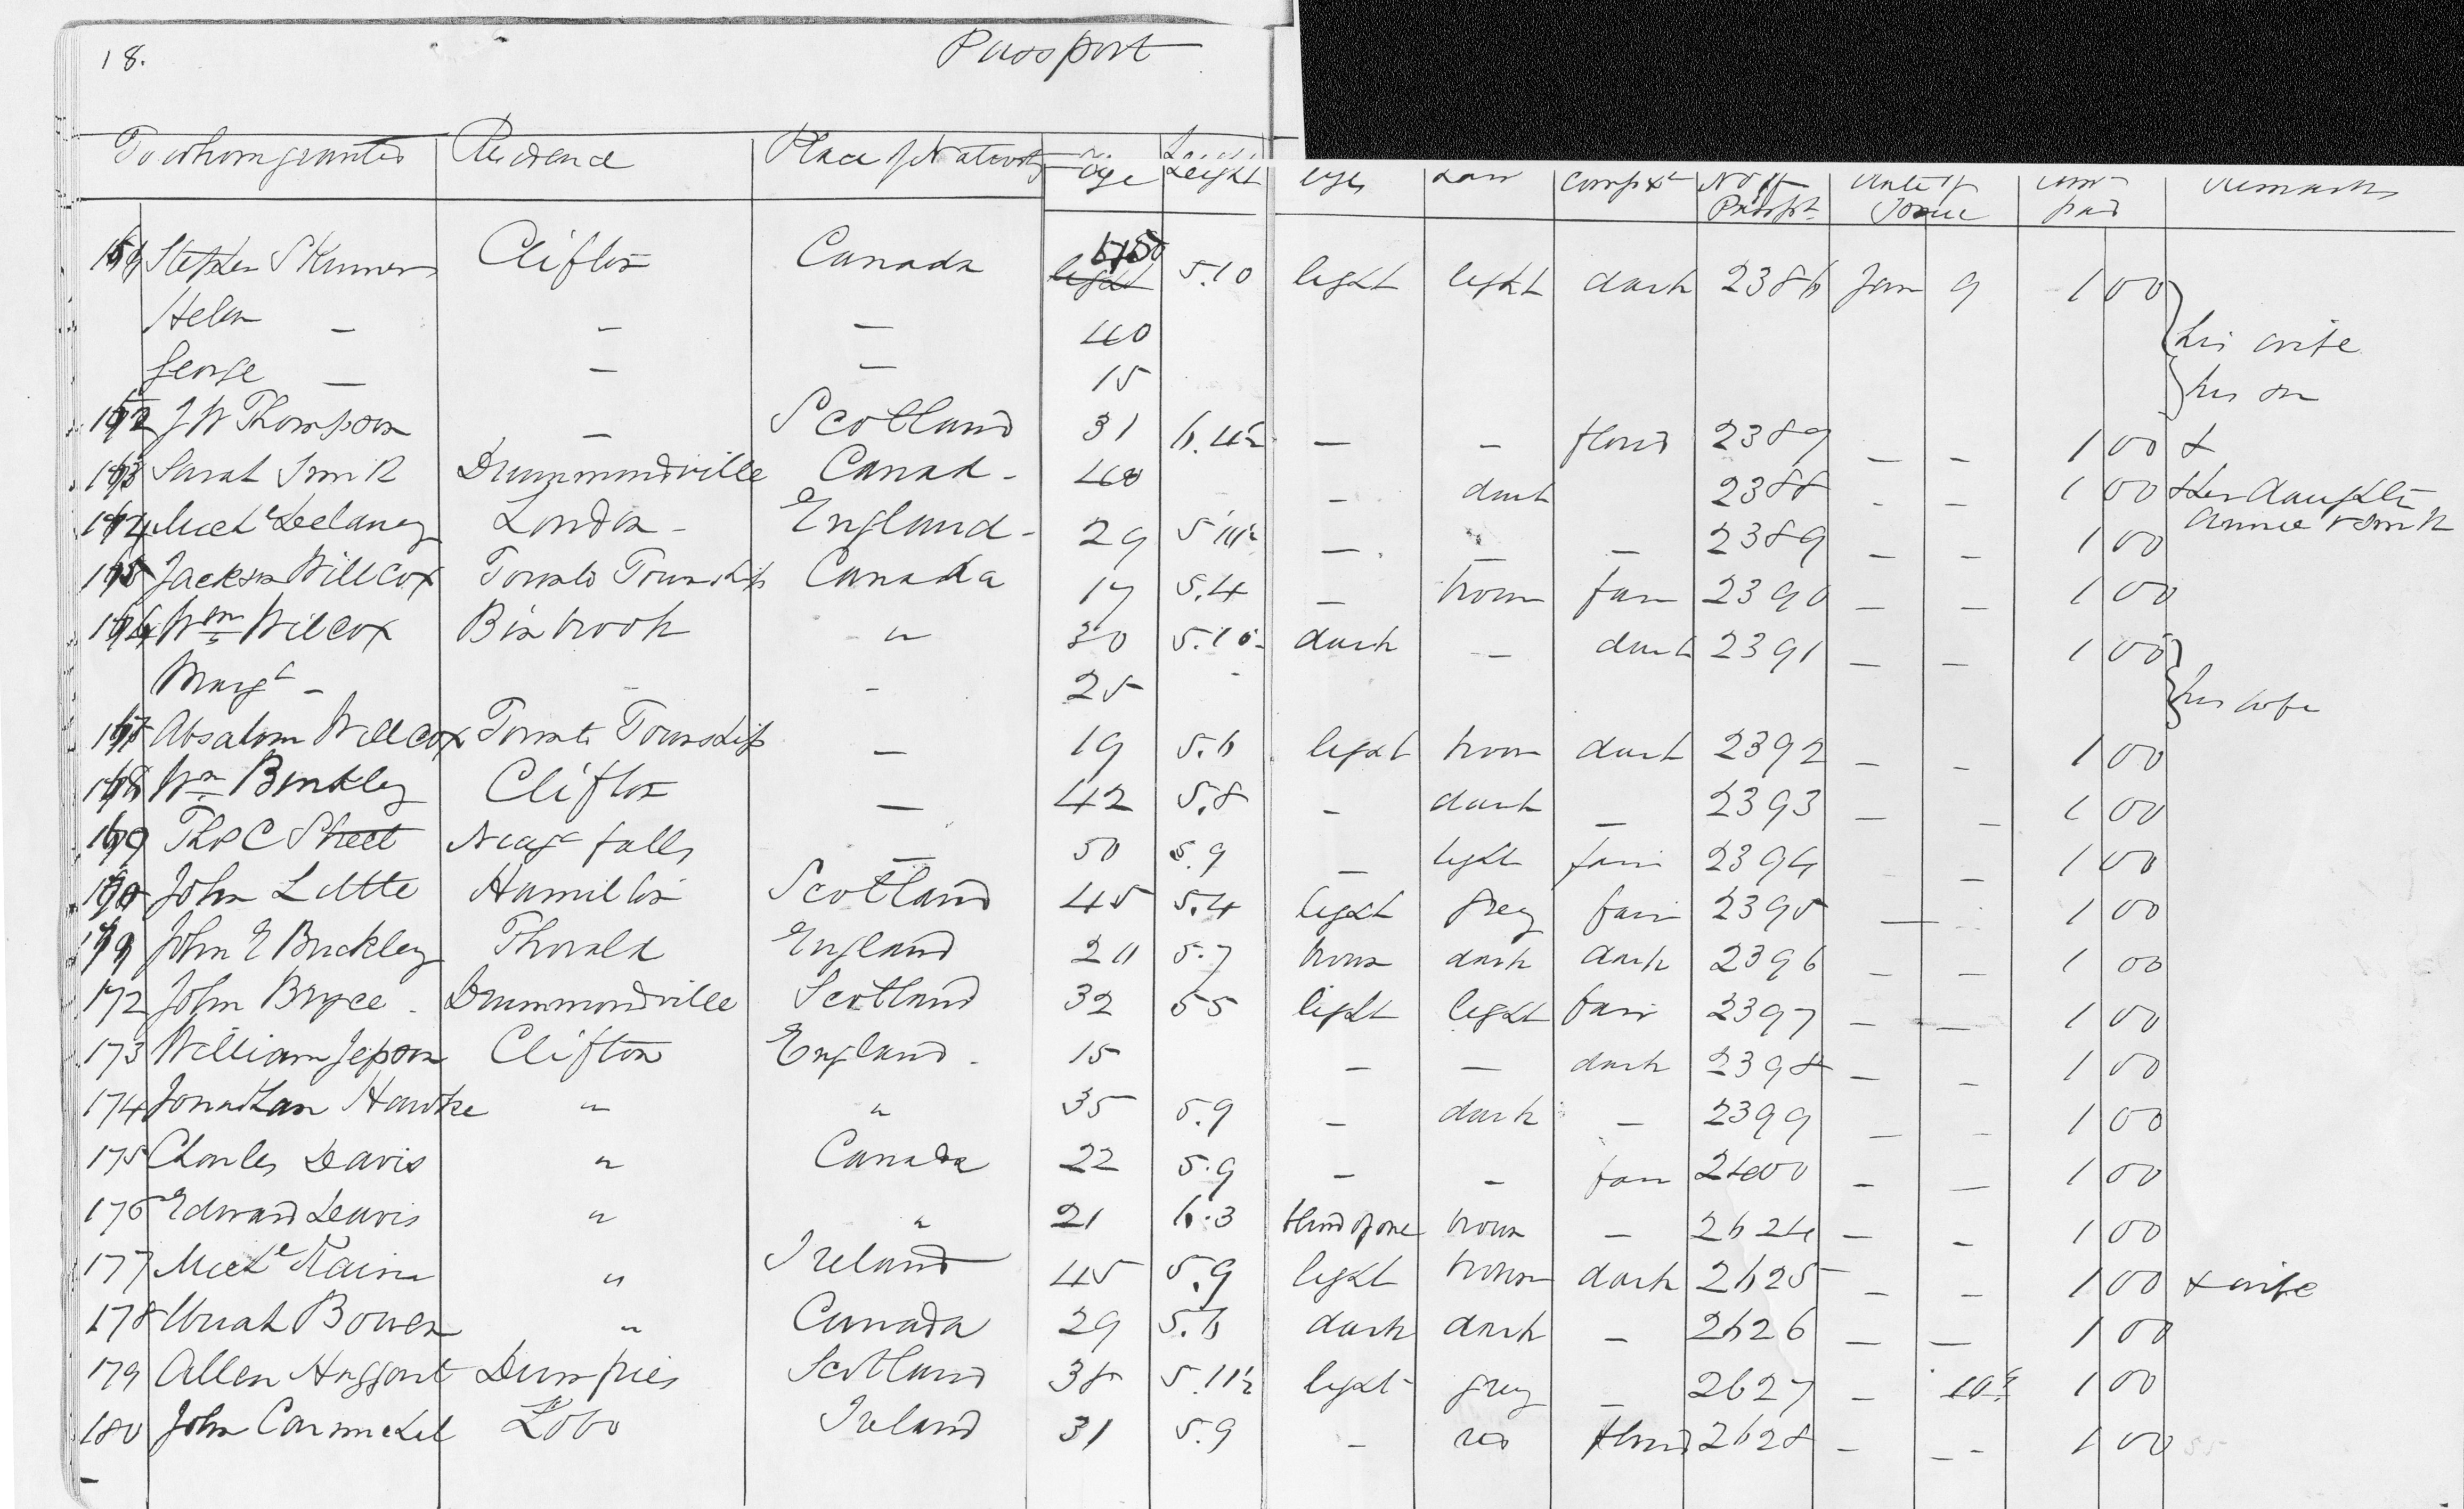 18. Passport
To whom granted Residence Place of Nativity Age Height eyes hair Compxn No of Passpt Date of Issue Amt paid Remarks
Stephen Skinner Clifton Canada 50 light 5.10 light light dark 2386 Jan 9 1 00
Helen — — — 40 his wife
George — — — 15 his son
162 J W Thompson — Scotland 31 6.4½ — — florid 2389 — — 1 00 &
163 Sarah Smith Drummondville Canad - 40 — dark 2388 - - 1 00 & her daughter
164 Michl Delaney London - England - 29 5 11½ — — — 2389 — — 1 00 Annie Smith
165 Jackson Willcox Toronto Township Canada 17 5.4 — brown fair 2390 — — 1 00
166 Wm Wilcox Binbrook " 30 5.10 dark — dark 2391 — — 1 00
Margt - - - 25 - his wife
167 Absalom Willcox Toronto Township — 19 5.6 light brown dark 2392 — — 1 00
168 Wm Binkley Clifton — 42 5.8 - dark — 2393 — — 1 00
169 Thos C Street Niaga falls — 50 5.9 — light fair 2394 - — 1 00
170 John Little Hamilton Scotland 45 5.4 light grey fair 2395 — - 1 00
171 John E Buckley Thorold England 20 5.7 brown dark dark 2396 — — 1 00
172 John Bryce - Drummondville Scotland 32 5 5 light light fair 2397 — — 1 00
173 William Jepson Clifton England - 15 — — dark 2398 — — 1 00
174 Jonathan Hawke " " 35 5.9 — dark — 2399 — - 1 00
175 Charles Davis " Canada 22 5.9 — — fair 2400 — — 1 00
176 Edward Davis " " 21 6.3 blind of one brown — 2624 — — 1 00
177 Michl Kain " Ireland 45 5.9 light brown dark 2625 — — 1 00 & wife
178 Uriah Bowen " Canada 29 5.6 dark dark — 2626 — — 1 00
179 Allen Haggart Dumfries Scotland 38 5.11½ light grey — 2627 — 10 1 00
180 John Carmichel Lobo Ireland 31 5.9 — red florid 2628 — — 1 00